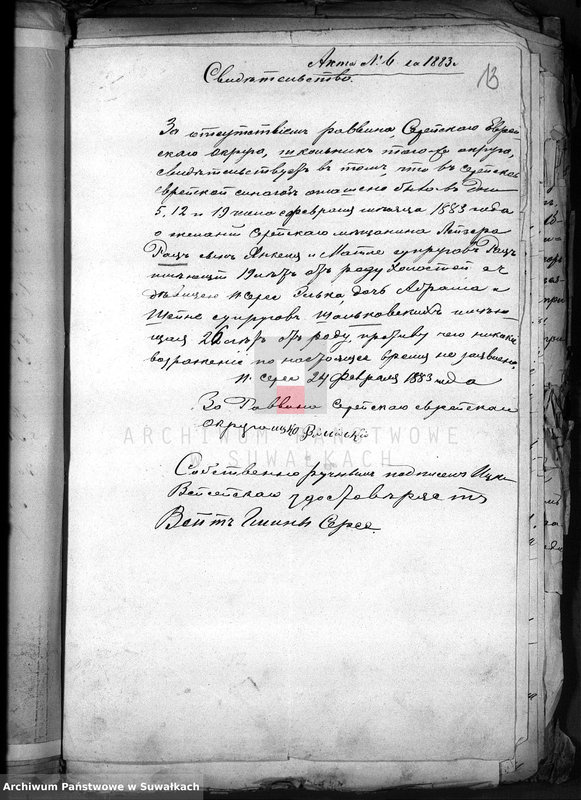 Акта № 6 за 1883 г
13
Свидѣтельство.
За отсутствіемъ раввина Сейскаго Еврей
скаго округа, школьникъ того-же округа,
свидѣтельствуетъ въ томъ, что въ Сейской
еврейской синагогѣ оглашено было въ дни
5, 12 и 19 числа февраля мѣсяца 1883 года
о желаніи Сейскаго мѣщанина Лейзера
сына Янкеля и супруговъ
имѣющій 19 лѣтъ отъ роду холостой
дѣвицею п. Серее дочь Абрама и
Шейне супруговъ имѣю
щая 20 лѣтъ отъ роду, противу чего никакъ
возраженіе по настоящее время не заявлено.
п. Серее 24 Февраля 1883 года
За Раввина Серейскаго еврейскаго
округа
Собственно ручнымъ подписемъ Ицки
удостовѣряетъ
Войтъ Гмины Серее.
ARCHIWUM PAŃSTWOWE
W SUWAŁKACH
Archiwum Państwowe w Suwałkach